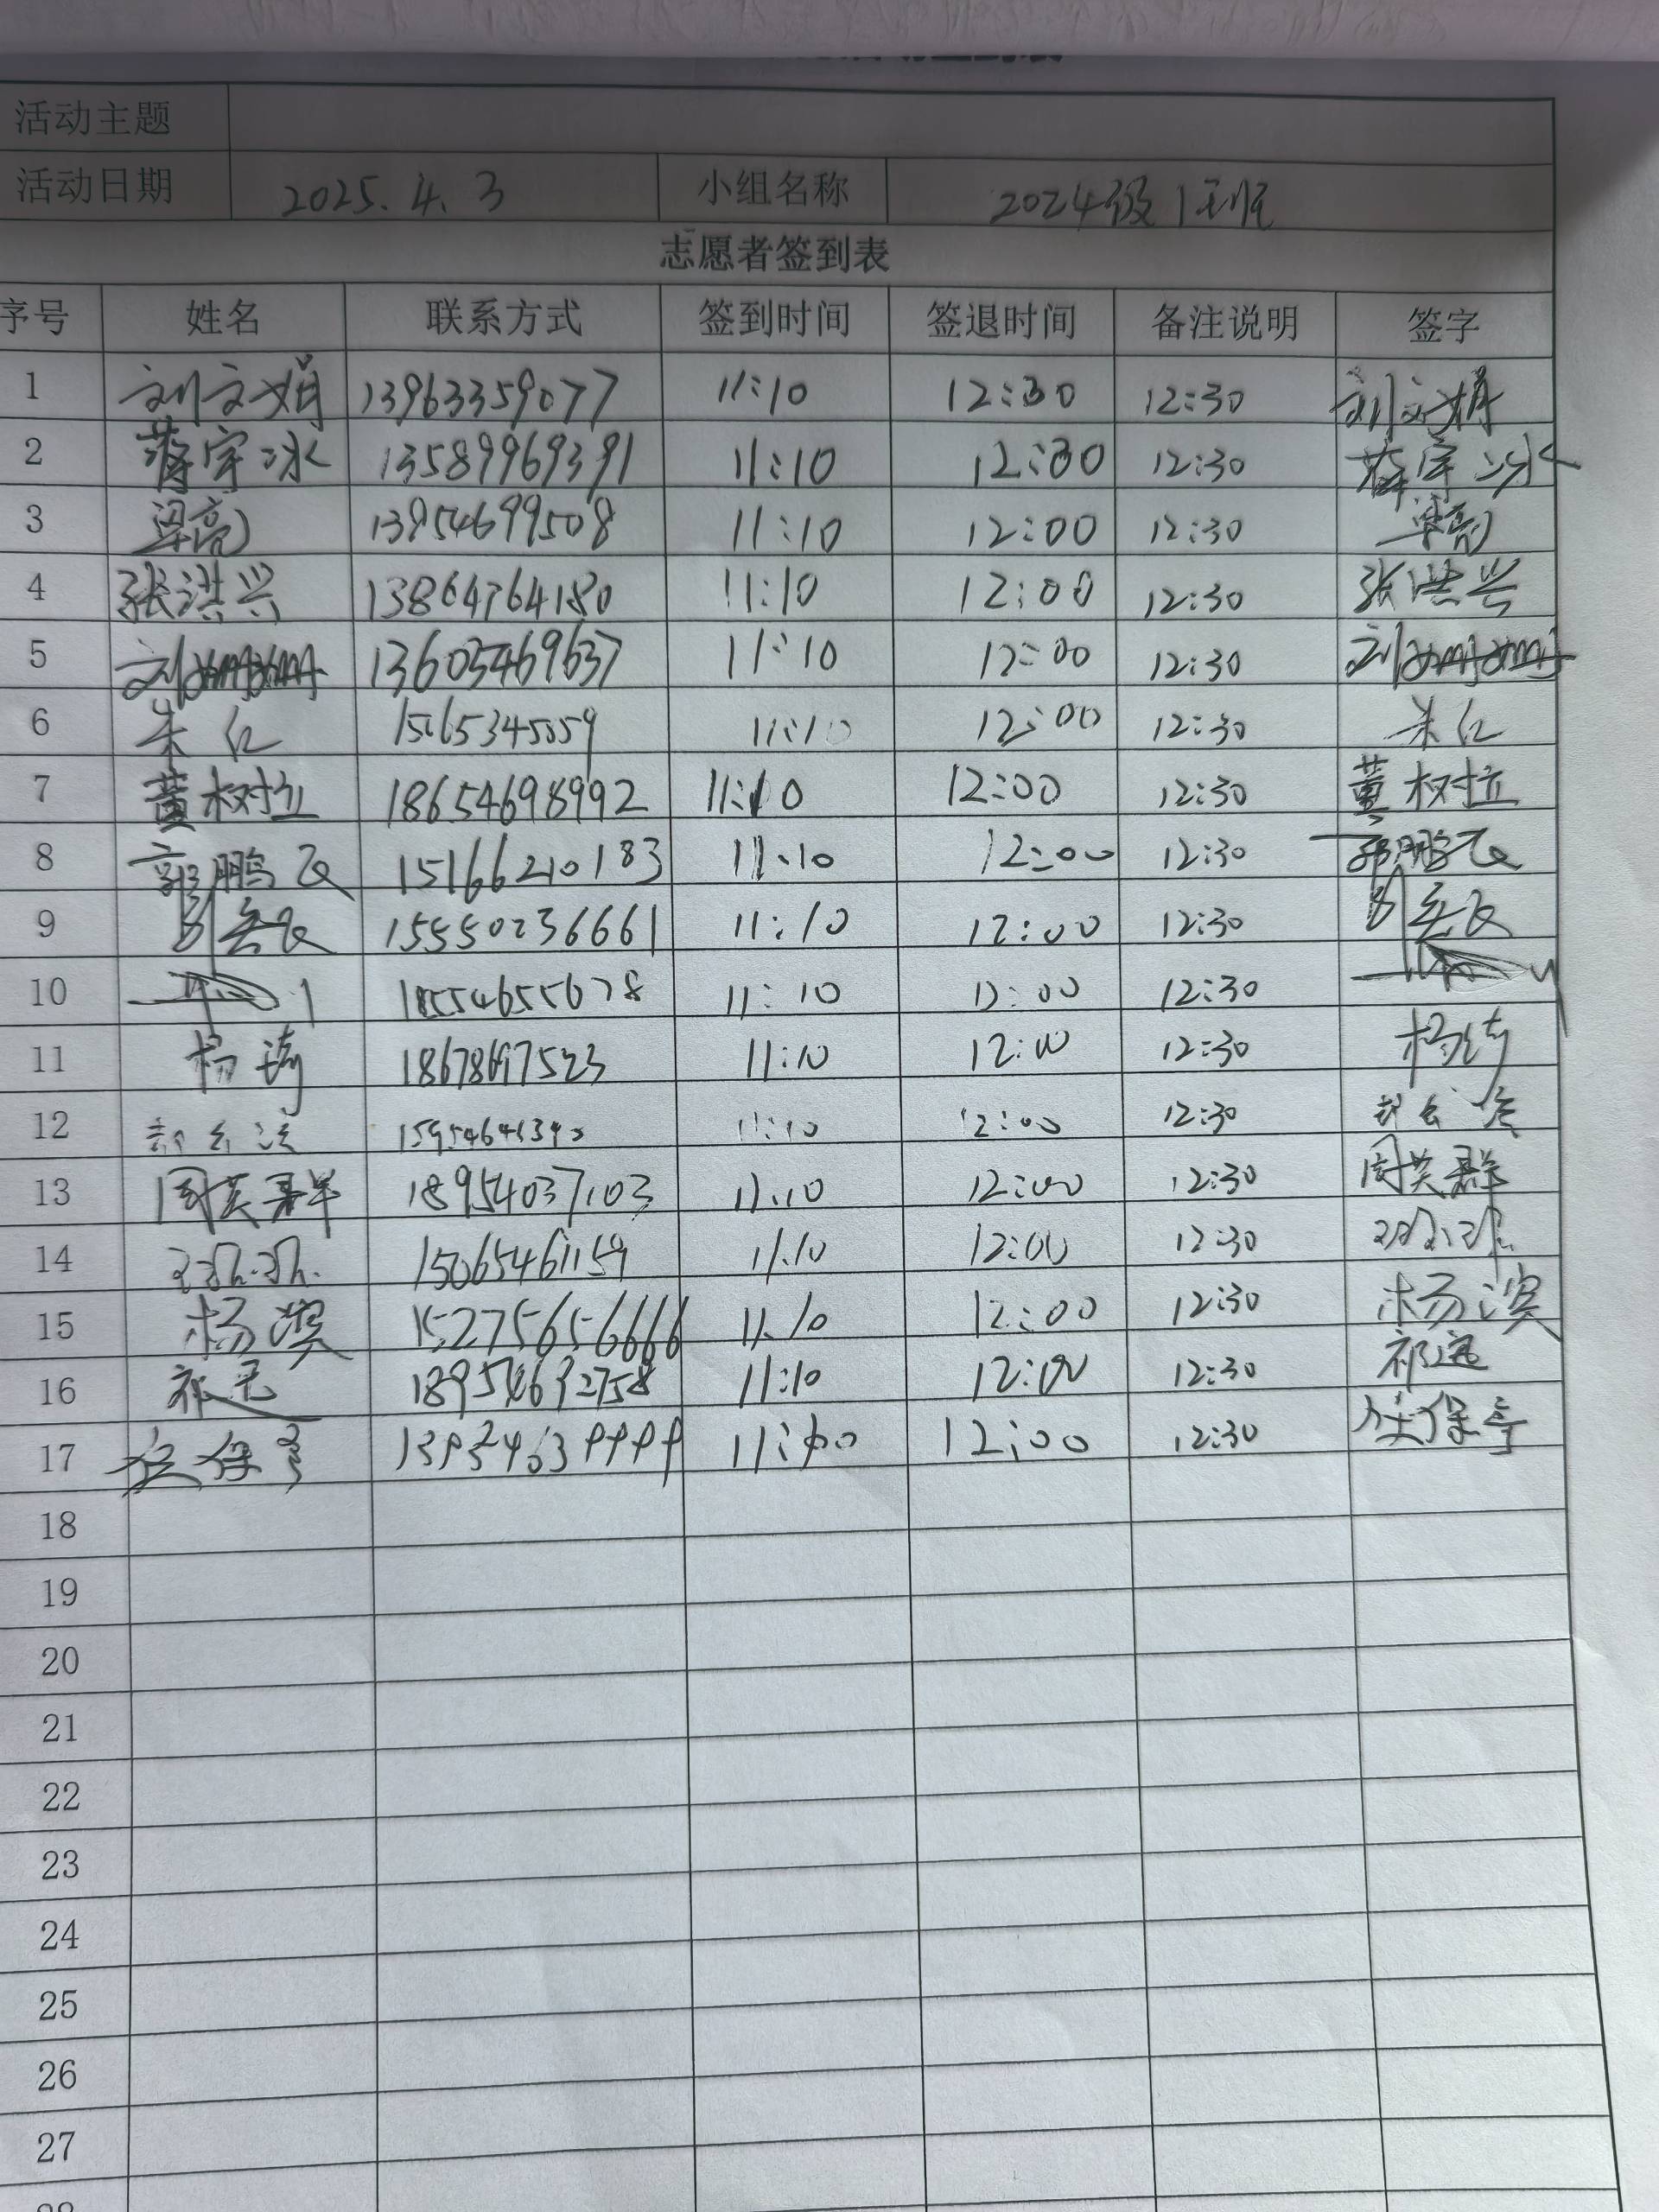 活动主题
活动日期 2025.4.3 小组名称 2024级1班
志愿者签到表
序号 姓名 联系方式 签到时间 签退时间 备注说明 签字
1 刘文娟 13963359077 11:10 12:30 12:30 刘文娟
2 蒋宇冰 13589969391 11:10 12:30 12:30 蒋宇冰
3 梁亮 13954699508 11:10 12:00 12:30 梁亮
4 张洪兴 13864764180 11:10 12:00 12:30 张洪兴
5 刘娜娜 13605469637 11:10 12:00 12:30 刘娜娜
6 朱红 15065345059 11:10 12:00 12:30 朱红
7 董树立 18654698992 11:10 12:00 12:30 董树立
8 郭鹏飞 15166210183 11:10 12:00 12:30 郭鹏飞
9 15550236661 11:10 12:00 12:30
10 18554655678 11:10 12:00 12:30
11 杨琦 18678697523 11:10 12:00 12:30 杨琦
12 11:10 12:00 12:30
13 周英群 18954037103 11:10 12:00 12:30 周英群
14 15065461159 11:10 12:00 12:30
15 杨滨 11:10 12:00 12:30 杨滨
16 祁 18954692758 11:10 12:00 12:30 祁
17 任保亭 11:10 12:00 12:30 任保亭
18
19
20
21
22
23
24
25
26
27
28